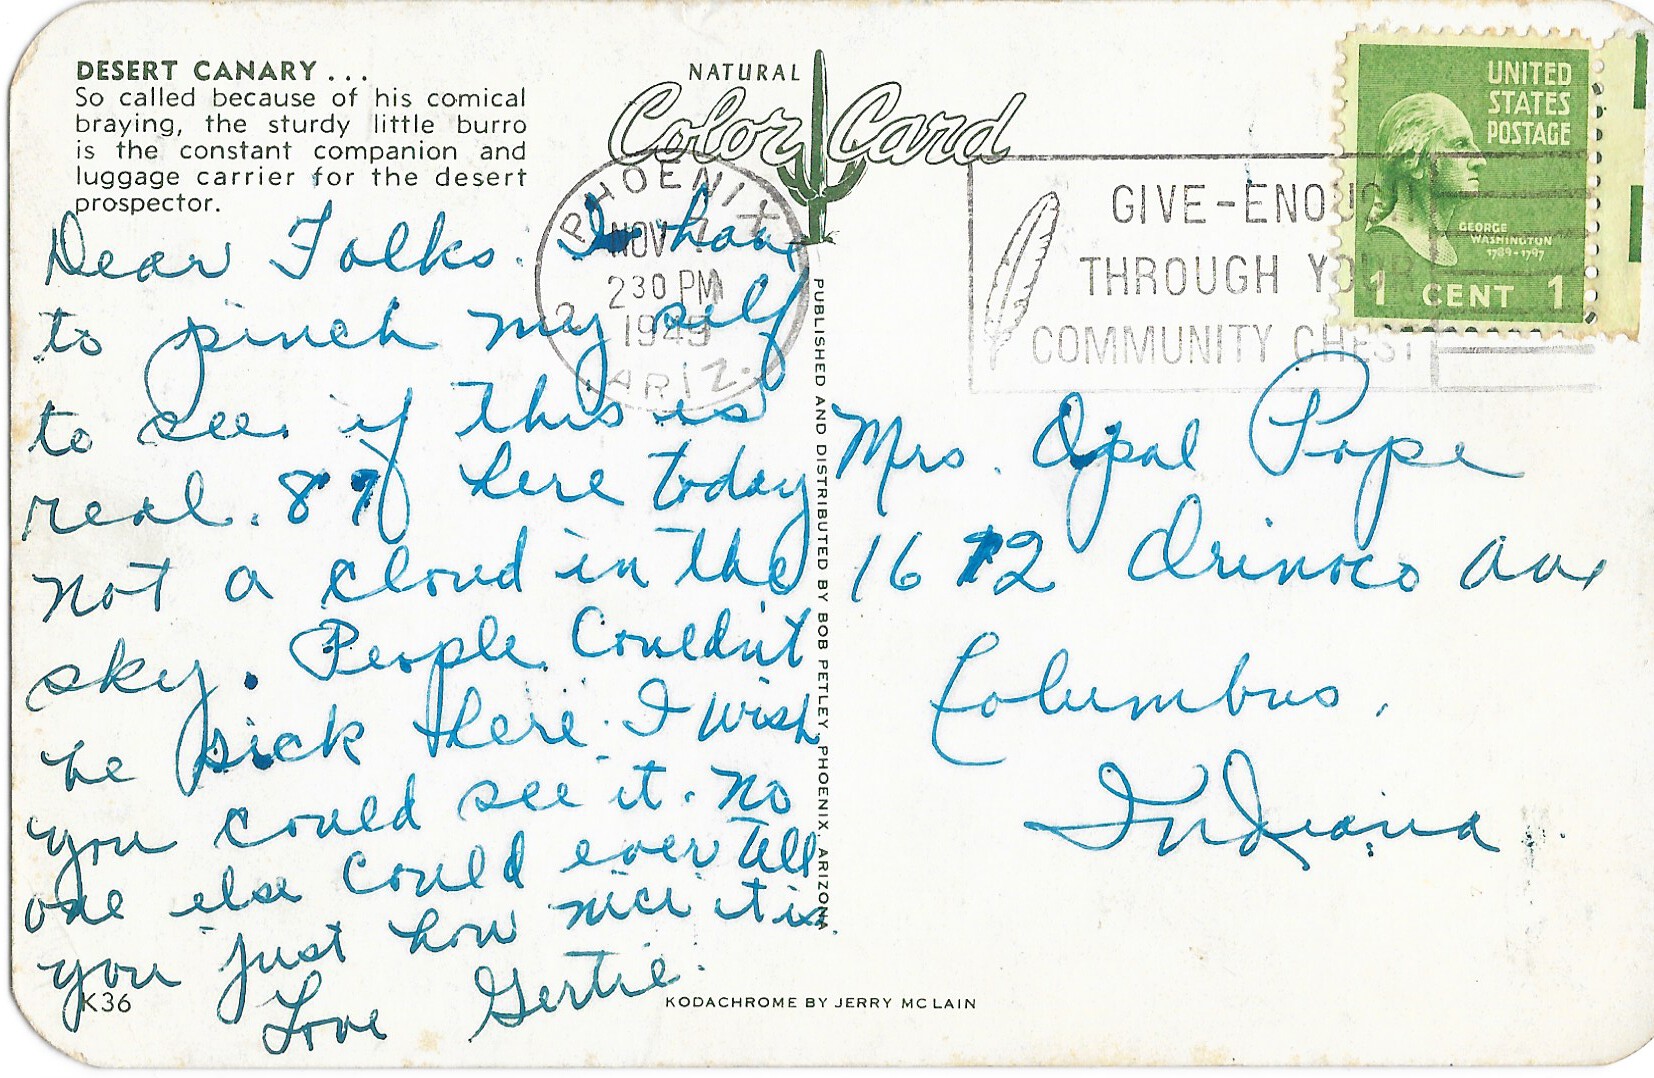 DESERT CANARY...
So called because of his comical
braying, the sturdy little burro
is the constant companion and
luggage carrier for the desert
prospector.
NATURAL
Color Card
PHOENIX
NOV 7
2 30 PM
1949
2
ARIZ.
GIVE-ENOUGH
THROUGH YOUR
COMMUNITY CHEST
UNITED
STATES
POSTAGE
GEORGE
WASHINGTON
1789-1797
1 CENT 1
Dear Folks. I have
to pinch my self
to see if this is
real. 87 here today
not a cloud in the
sky. People Couldn't
be sick here. I wish
you could see it. No
one else could ever tell
you just how nice it is.
Love Gertie.
PUBLISHED AND DISTRIBUTED BY BOB PETLEY, PHOENIX, ARIZONA
Mrs. Opal Pope
1612 Orinoco Ave
Columbus,
Indiana
K36
KODACHROME BY JERRY MCLAIN